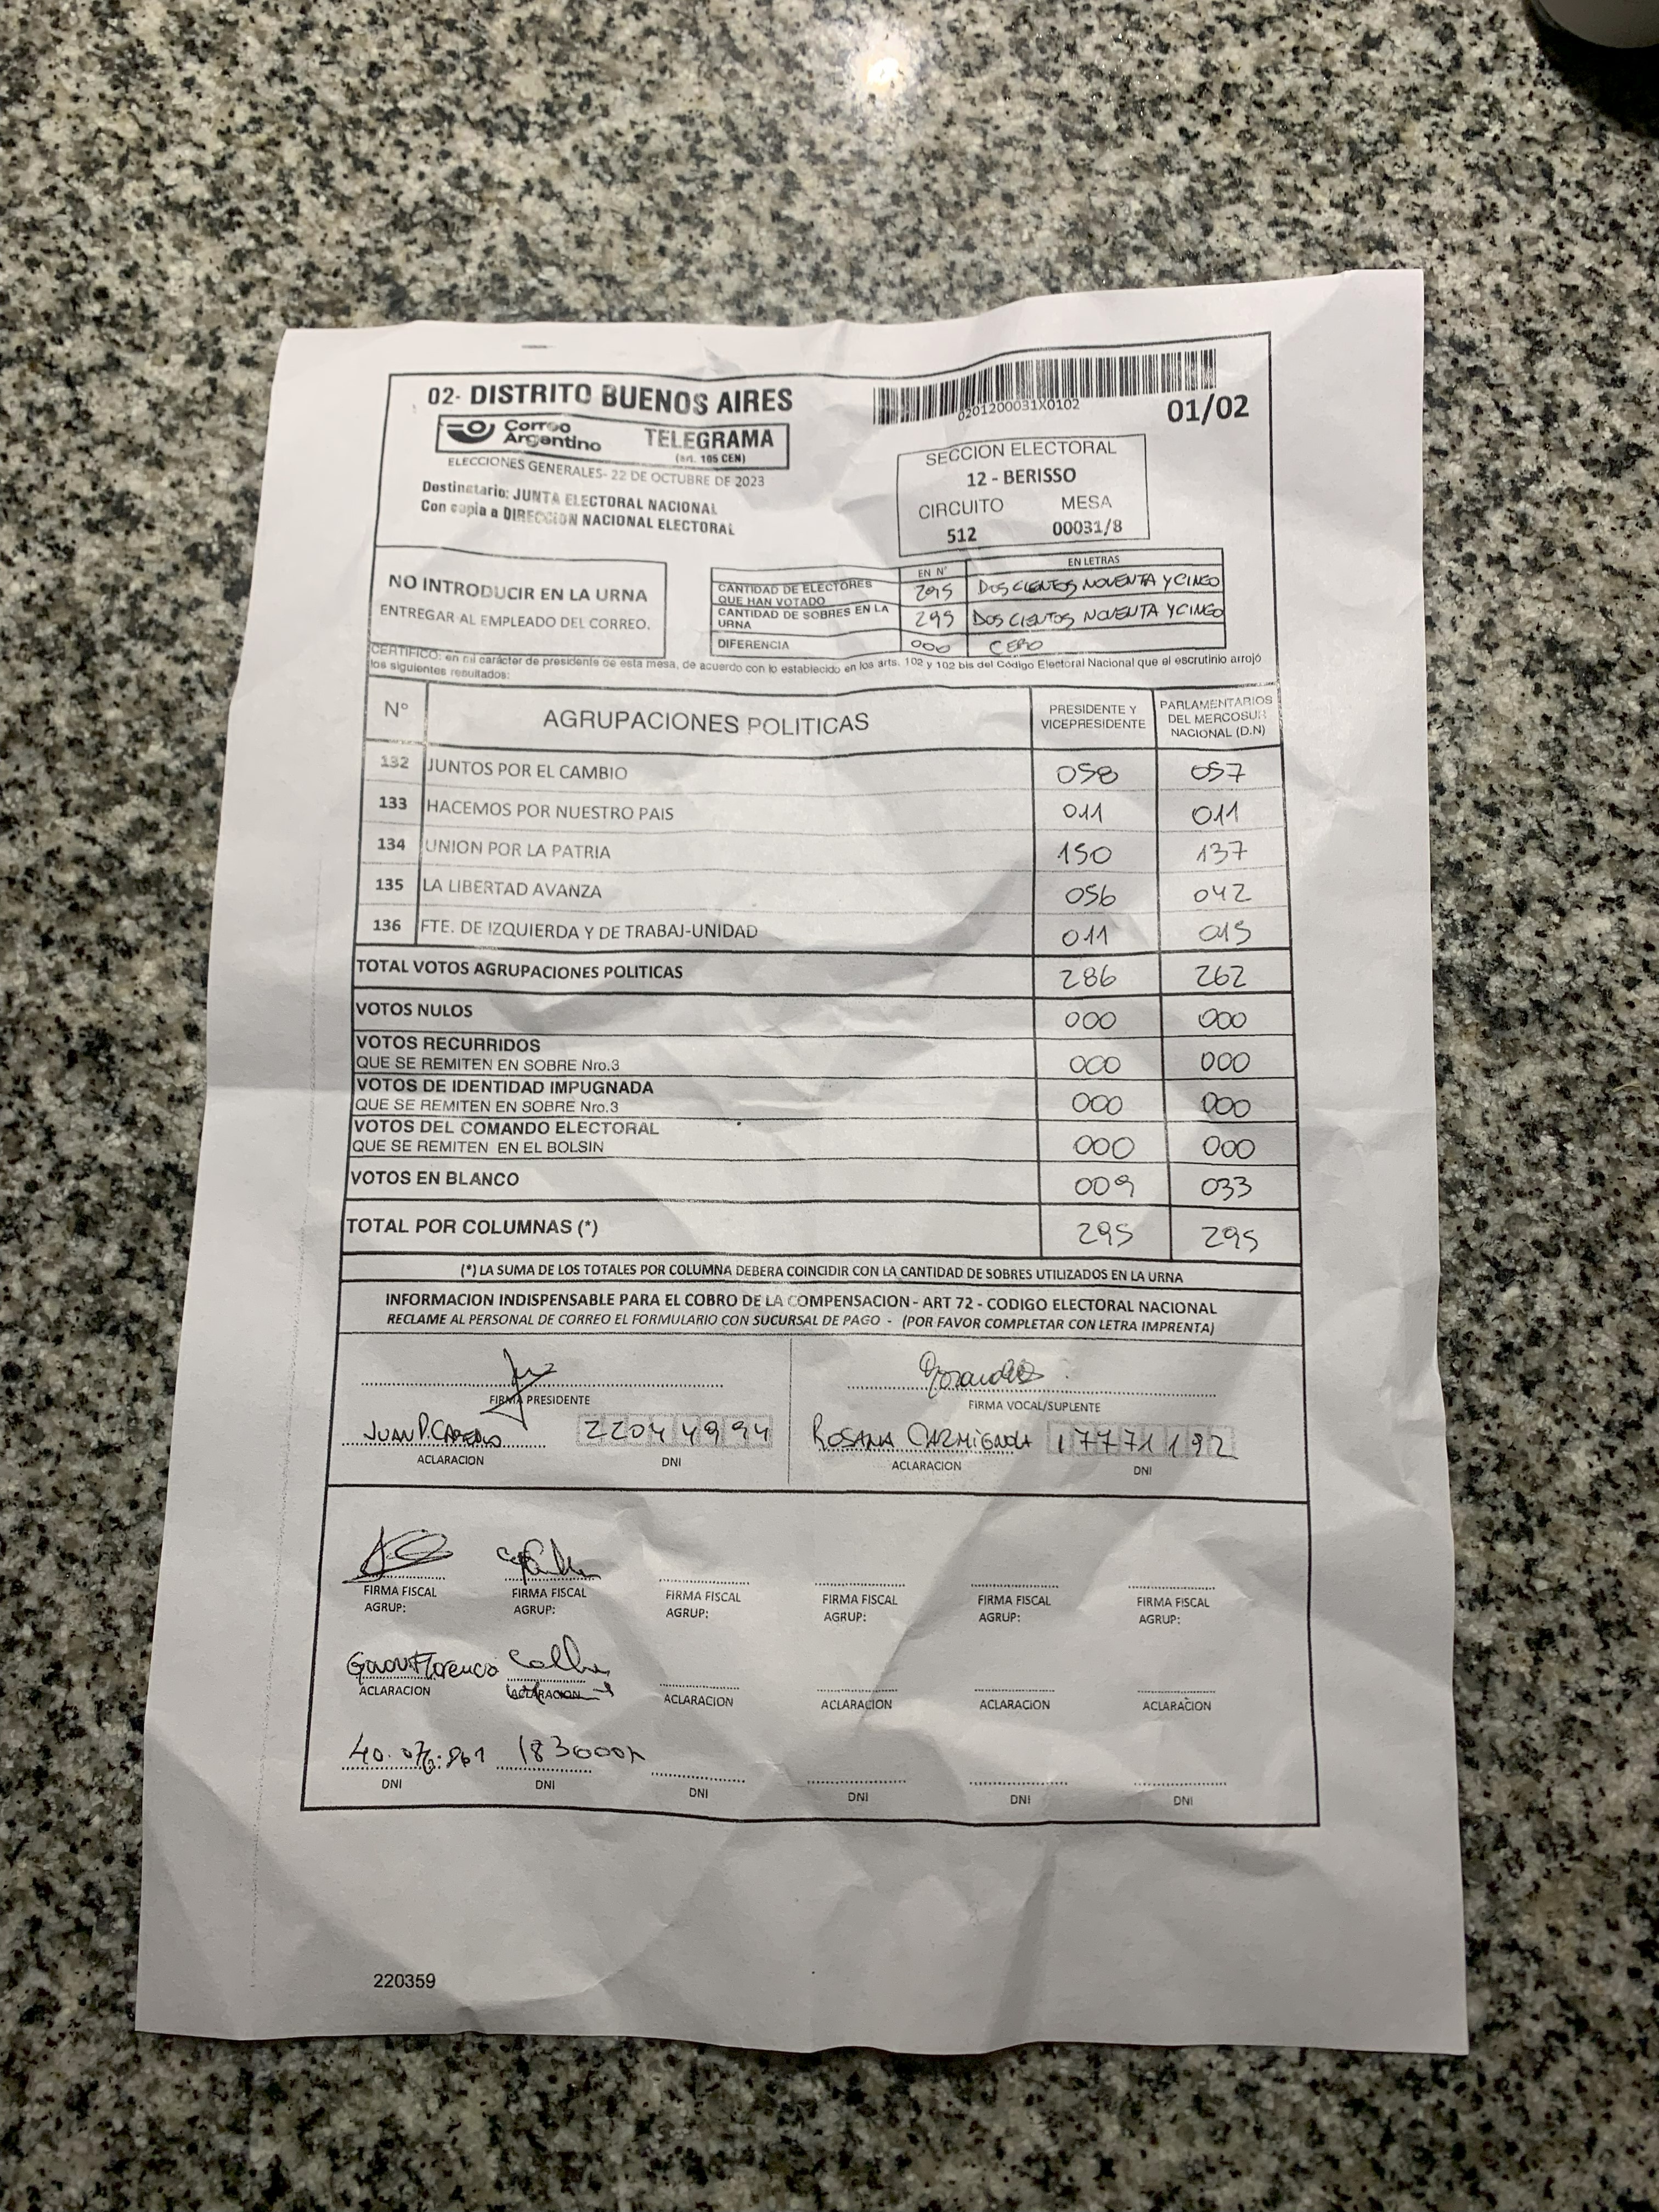 02- DISTRITO BUENOS AIRES
0201200031X0102
01/02
Correo Argentino
TELEGRAMA
(art. 105 CEN)
ELECCIONES GENERALES- 22 DE OCTUBRE DE 2023
Destinatario: JUNTA ELECTORAL NACIONAL
Con copia a DIRECCION NACIONAL ELECTORAL
SECCION ELECTORAL
12 - BERISSO
CIRCUITO MESA
512 00031/8
NO INTRODUCIR EN LA URNA
ENTREGAR AL EMPLEADO DEL CORREO.
EN N° EN LETRAS
CANTIDAD DE ELECTORES QUE HAN VOTADO 295 DOSCIENTOS NOVENTA Y CINCO
CANTIDAD DE SOBRES EN LA URNA 295 DOSCIENTOS NOVENTA Y CINCO
DIFERENCIA 000 CERO
CERTIFICO: en mi carácter de presidente de esta mesa, de acuerdo con lo establecido en los arts. 102 y 102 bis del Código Electoral Nacional que al escrutinio arrojó
los siguientes resultados:
N° AGRUPACIONES POLITICAS PRESIDENTE Y VICEPRESIDENTE PARLAMENTARIOS DEL MERCOSUR NACIONAL (D.N)
132 JUNTOS POR EL CAMBIO 058 057
133 HACEMOS POR NUESTRO PAIS 011 011
134 UNION POR LA PATRIA 150 137
135 LA LIBERTAD AVANZA 056 042
136 FTE. DE IZQUIERDA Y DE TRABAJ-UNIDAD 011 015
TOTAL VOTOS AGRUPACIONES POLITICAS 286 262
VOTOS NULOS 000 000
VOTOS RECURRIDOS
QUE SE REMITEN EN SOBRE Nro.3 000 000
VOTOS DE IDENTIDAD IMPUGNADA
QUE SE REMITEN EN SOBRE Nro.3 000 000
VOTOS DEL COMANDO ELECTORAL
QUE SE REMITEN EN EL BOLSIN 000 000
VOTOS EN BLANCO 009 033
TOTAL POR COLUMNAS (*) 295 295
(*) LA SUMA DE LOS TOTALES POR COLUMNA DEBERA COINCIDIR CON LA CANTIDAD DE SOBRES UTILIZADOS EN LA URNA
INFORMACION INDISPENSABLE PARA EL COBRO DE LA COMPENSACION - ART 72 - CODIGO ELECTORAL NACIONAL
RECLAME AL PERSONAL DE CORREO EL FORMULARIO CON SUCURSAL DE PAGO - (POR FAVOR COMPLETAR CON LETRA IMPRENTA)
FIRMA PRESIDENTE FIRMA VOCAL/SUPLENTE
JUAN P. 22044994 ROSANA CARMIGNOLA 17771192
ACLARACION DNI ACLARACION DNI
FIRMA FISCAL FIRMA FISCAL FIRMA FISCAL FIRMA FISCAL FIRMA FISCAL FIRMA FISCAL
AGRUP: AGRUP: AGRUP: AGRUP: AGRUP: AGRUP:
ACLARACION ACLARACION ACLARACION ACLARACION ACLARACION ACLARACION
DNI DNI DNI DNI DNI DNI
220359